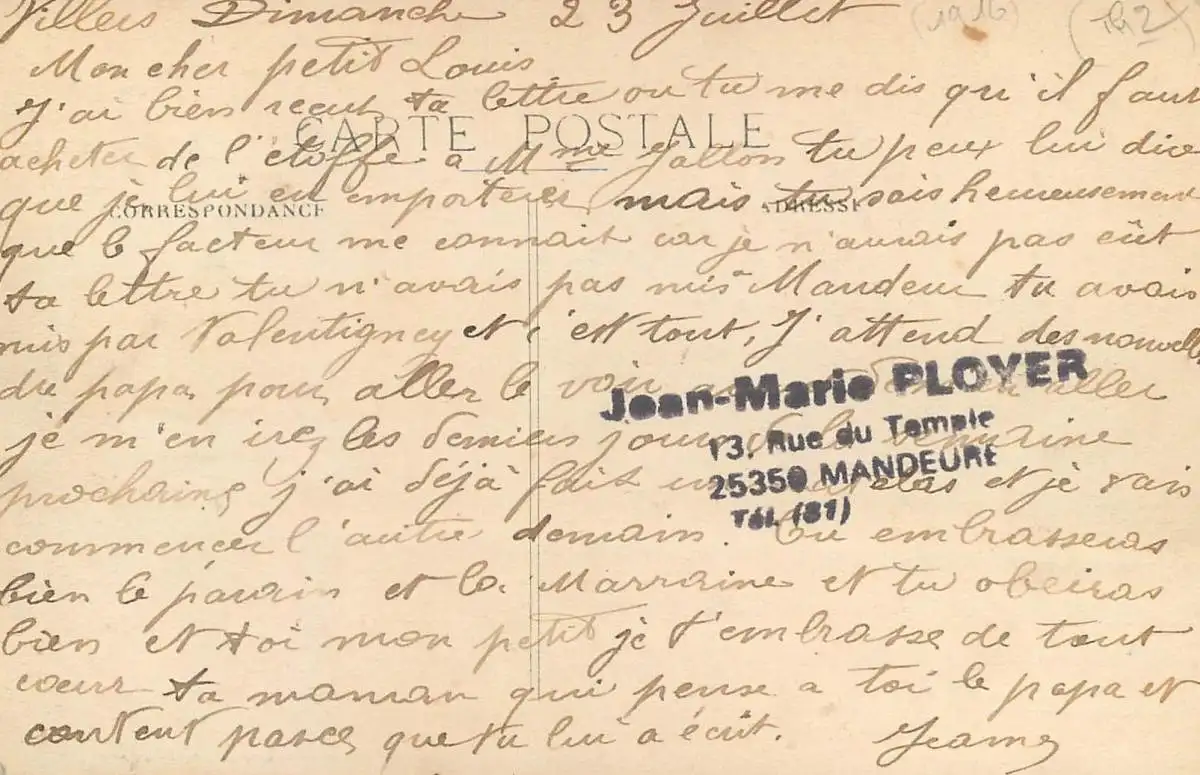 Villers Dimanche 23 Juillet (1916) (192)
Mon cher petit Louis
J'ai bien reçut ta lettre ou tu me dis qu'il faut
CARTE POSTALE
acheter de l'étoffe a Mme Jallon tu peux lui dire
que je lui en emporterer mais tu sais heureusement
CORRESPONDANCE ADRESSE
que le facteur me connait car je n'aurais pas eût
ta lettre tu n'avais pas mis Mandeur tu avais
mis par Valentigney et c'est tout, J'attend des nouvelle
du papa pour aller le voir aller
Jean-Marie PLOYER
je m'en irez les derniers jours de la semaine
13, Rue du Temple
25350 MANDEURE
prochaine j'ai déjà fait un matelas et je vais
Tél. (81)
commencer l'autre demain. Tu embrasseras
bien le parain et la Marraine et tu obeiras
bien et toi mon petit je t'embrasse de tout
cœur ta maman qui pense a toi le papa et
content parce que tu lui a écrit. Jeanne